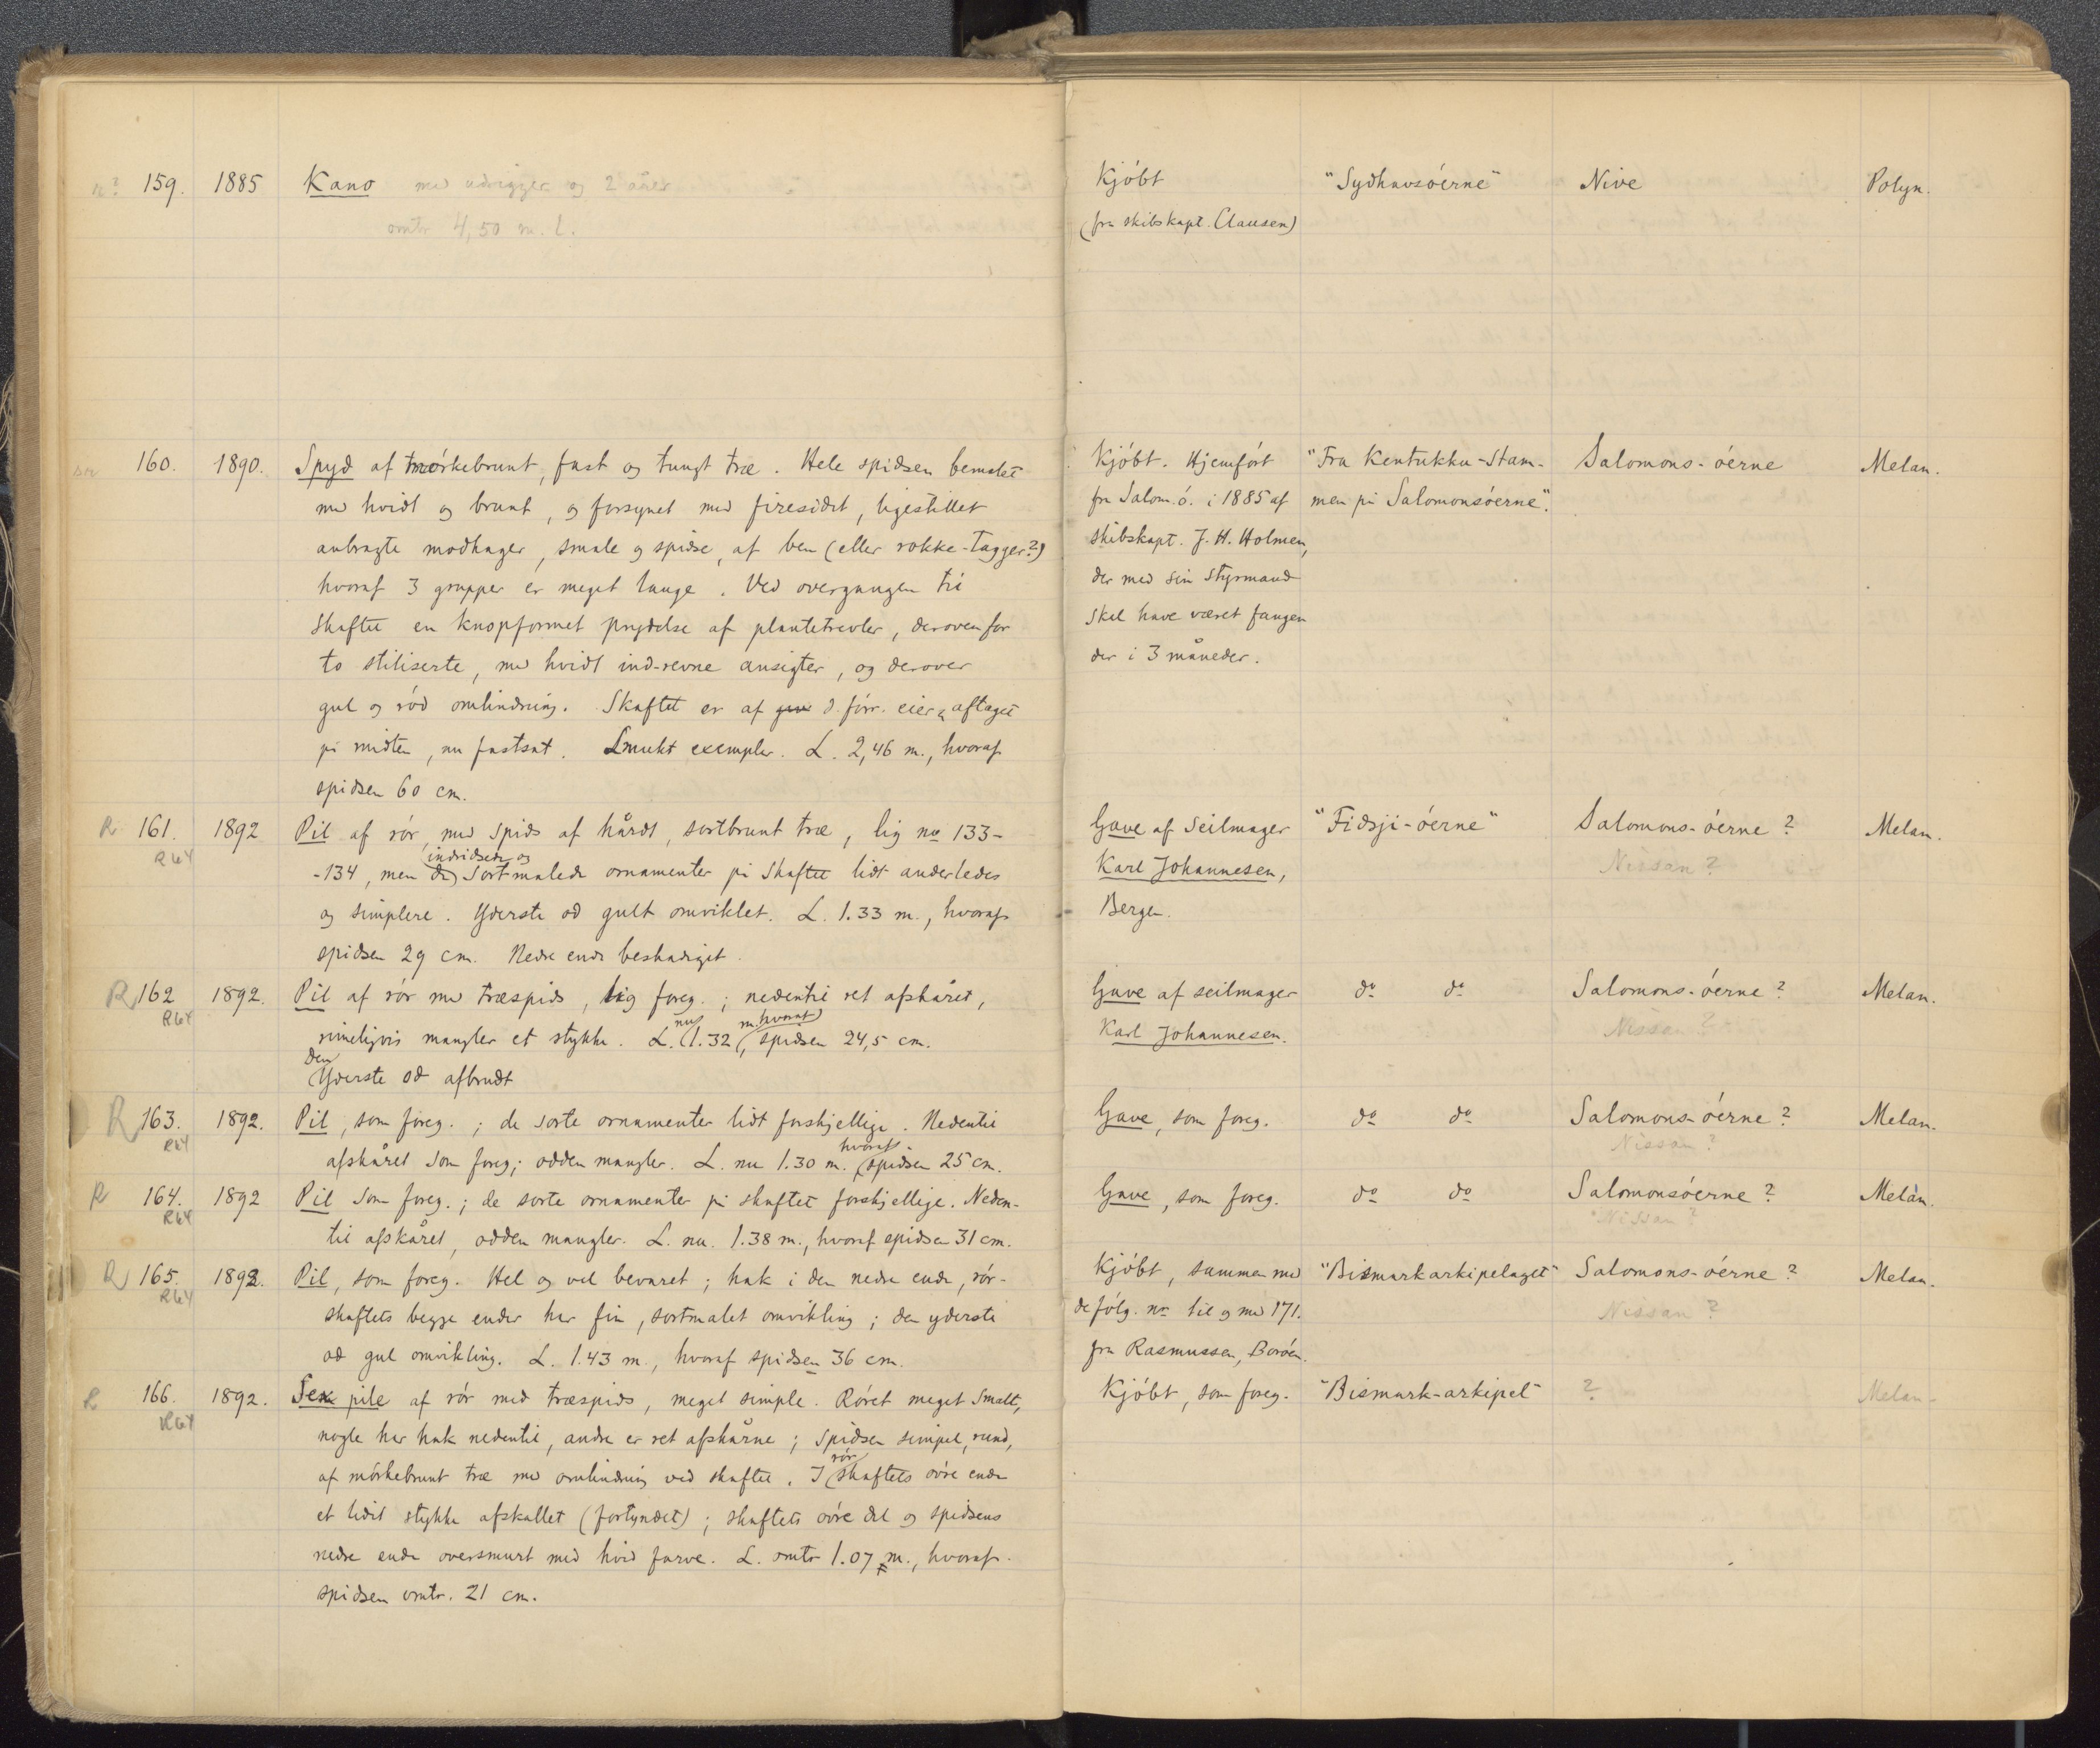 n? 159. 1885 Kano med udrigger og 2 årer Kjóbt "Sydhavsóerne" Nive Polyn.
omtr 4,50 m. L. (fra skibskapt. Clausen)
160. 1890. Spyd af mórkebrunt, fast og tungt træ. Hele spidsen bemalet Kjóbt. Hjemfórt "Fra Kentukku-Stam- Salomons-óerne Melan.
med hvidt og brunt, og forsynet med firesidet, ligestillet fra Salom.ó. i 1885 af men på Salomonsóerne".
anbragte modhager, smale og spidse, af ben (eller rokke-tagger?) skibskapt. J. H. Holmen,
hvoraf 3 grupper er meget lange. Ved overgangen til der med sin Styrmand
skaftet en knopformet prydelse af plantetrevler, derovenfor skal have været fangen
to stiliserte, med hvidt ind-revne ansigter, og derover der i 3 måneder.
gul og ród omlindning. Skaftet er af d. fórr. eier aftaget
på midten, nu fastsat. Smukt exemplar. L. 2,46 m., hvoraf
spidsen 60 cm.
R 161. 1892 Pil af rór, med spids af hårdt, sortbrunt træ, lig no 133- Gave af Seilmager "Fidsji-óerne" Salomons-óerne? Melan.
R64 indridsede og
-134, men de sortmalede ornamenter på skaftet lidt anderledes Karl Johannesen, Nissan?
og simplere. Yderste od gult omviklet. L. 1.33 m., hvoraf Bergen.
spidsen 29 cm. Nedre ende beskadiget.
R 162 1892. Pil af rór med træspids, lig foreg.; nedentil ret afskåret, Gave af seilmager do do Salomons-óerne? Melan.
R64 nu m. hvoraf
rimeligvis mangler et stykke. L. 1.32, spidsen 24,5 cm. Karl Johannesen. Nissan?
den
Yderste od afbrudt
R 163. 1892. Pil, som foreg.; de sorte ornamenter lidt forskjellige. Nedentil Gave, som foreg. do do Salomons-óerne? Melan.
R64 hvoraf
afskåret som foreg; odden mangler. L. nu 1.30 m. spidsen 25 cm. Nissan?
R 164. 1892 Pil som foreg.; de sorte ornamenter på skaftet forskjellige. Neden- Gave, som foreg. do do Salomonsóerne? Melan.
R64 til afskåret, odden mangler. L. nu. 1.38 m., hvoraf spidsen 31 cm. Nissan?
R 165. 1892. Pil, som foreg. Hel og vel bevaret; hak i den nedre ende, rór- Kjóbt, sammen med "Bismarkarkipelaget" Salomons-óerne? Melan.
R64 skaftets begge ender har fin, sortmalet omvikling; den yderste de fólg. nr til og med 171. Nissan?
od gul omvikling. L. 1.43 m., hvoraf spidsen 36 cm. fra Rasmussen, Boróen.
R 166. 1892. Sex pile af rór med træspids, meget simple. Róret meget smalt, Kjóbt, som foreg. "Bismark-arkipel" ? Melan.
R64 nogle har hak nedentil, andre er ret afskårne; spidsen simpel, rund,
rór
af mórkebrunt træ med omlindning ved skaftet. I skaftets óvre ende
et lidet stykke afskallet (fortyndet); skaftets óvre del og spidsens
nedre ende oversmurt med hvid farve. L. omtr 1.07 m., hvoraf
spidsen omtr. 21 cm.